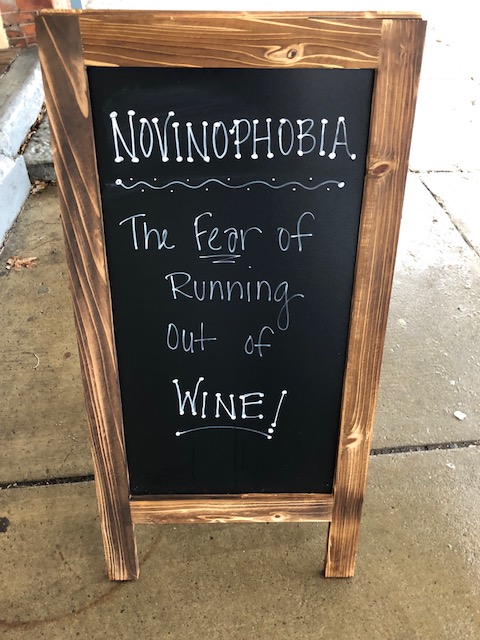 NOVINOPHOBIA
The Fear of
Running
out of
WINE!